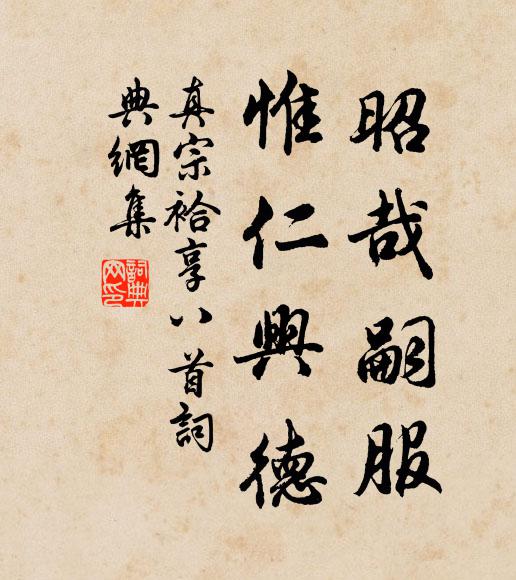 昭哉嗣服
惟仁興德
真宗袷享八首詞
典網集
詞典
网印